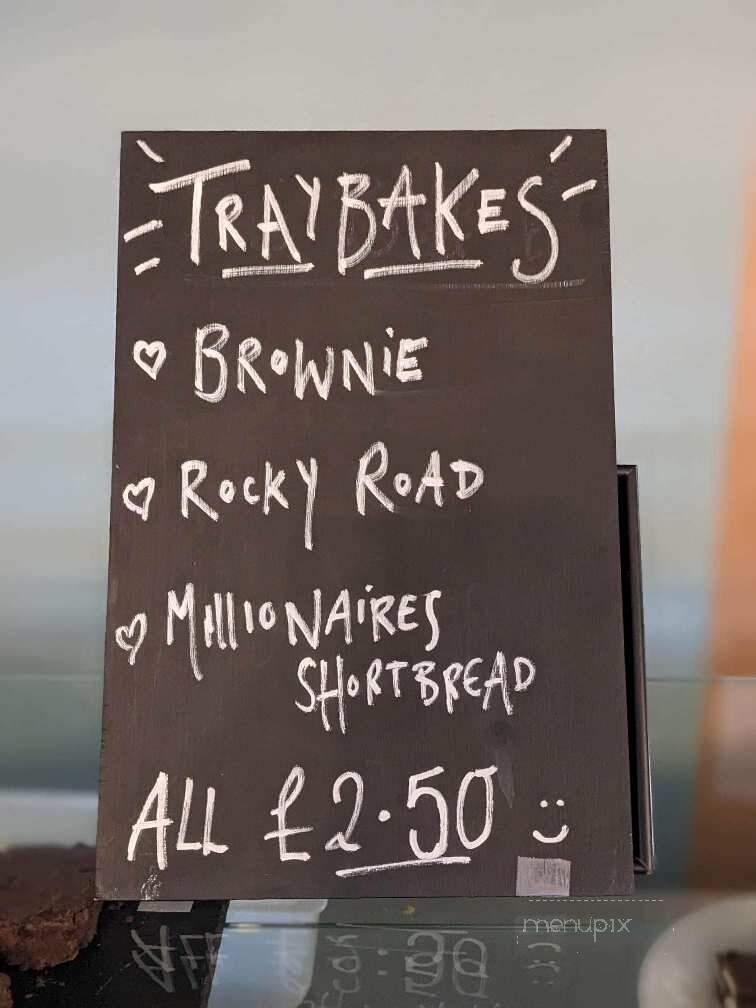 TRAYBAKES
♡ BROWNiE
♡ ROCKY ROAD
♡ MillIONAiRES
SHORTBREAD
ALL £2.50 :)
menupix